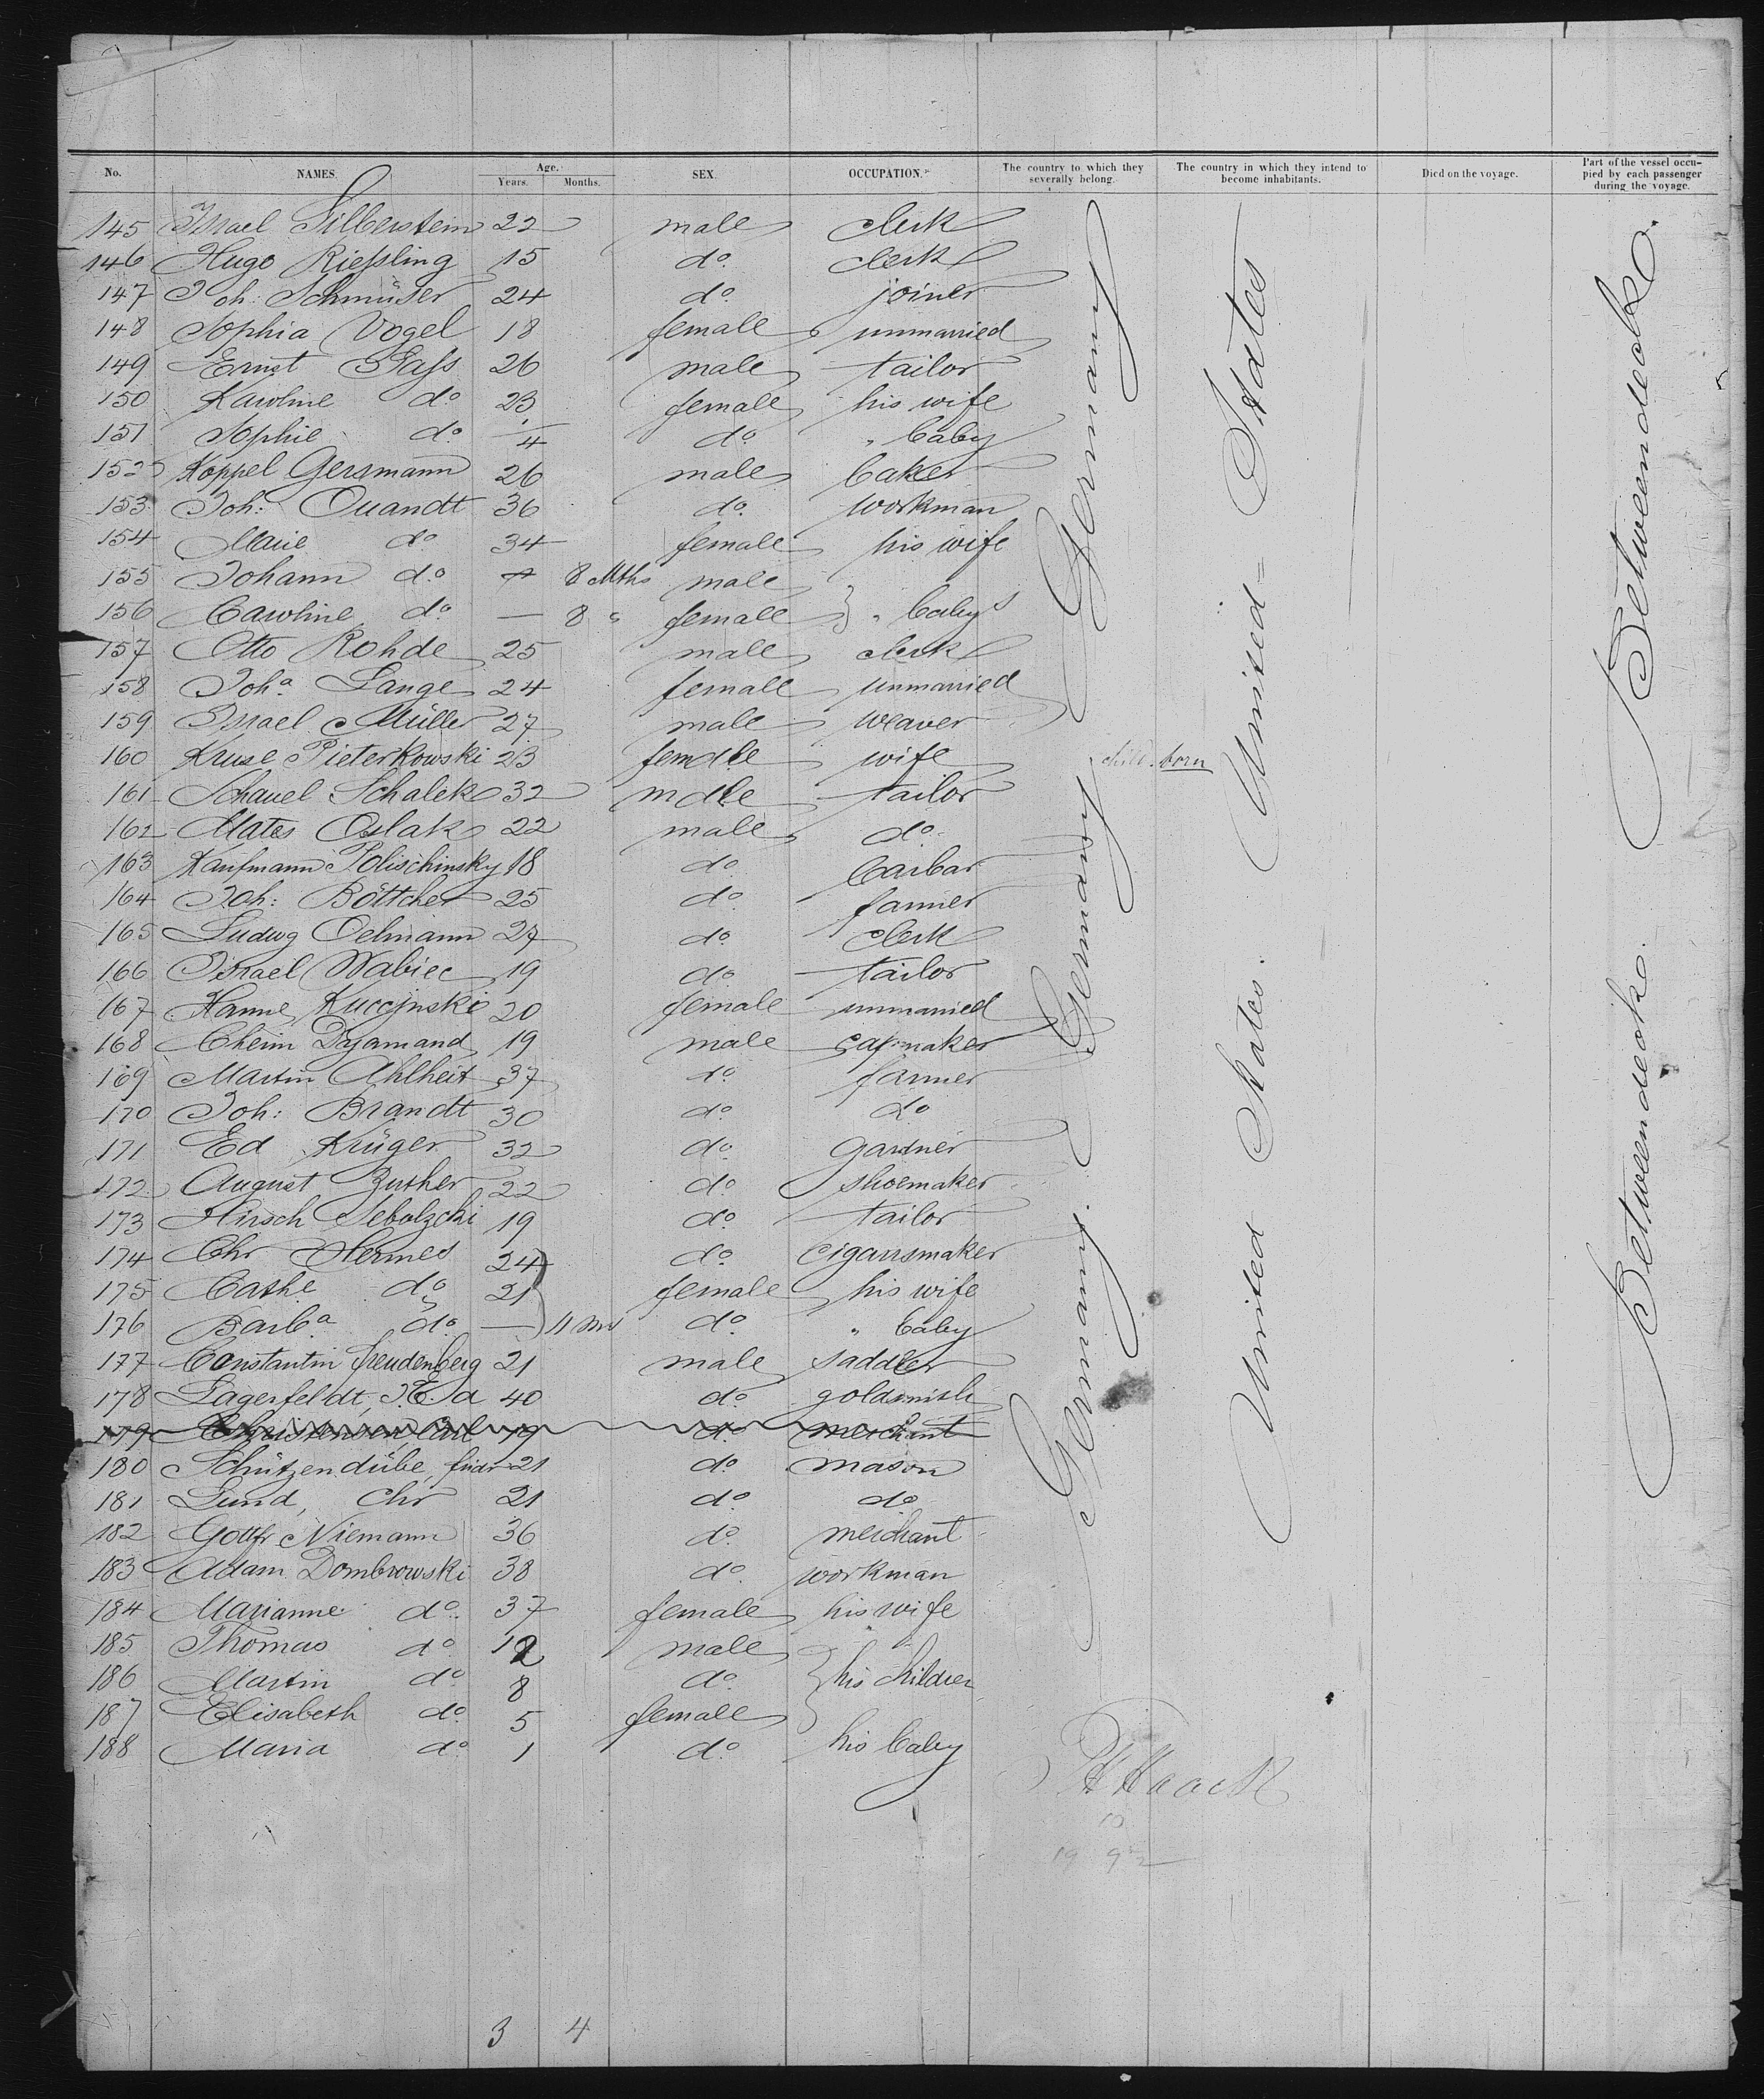 No. NAMES. Age. Years. Months. SEX. OCCUPATION.* The country to which they severally belong. The country in which they intend to become inhabitants. Died on the voyage. Part of the vessel occupied by each passenger during the voyage.
145 Israel Silberstein 22 male clerk
146 Hugo Rießling 15 do. clerk
147 Joh: Schmüser 24 do. joiner
148 Sophia Vogel 18 female unmarried
149 Ernst 26 male tailor
150 Karoline do 23 female his wife
151 Sophie do 1/4 do. " baby
152 Koppel Gersmann 26 male baker
153 Joh: Quandt 36 do. workman
154 Marie do 34 female his wife
155 Johann do. 8 Mths male
156 Caroline do — 8 " female } " babys
157 Otto Rohde 25 male clerk
158 Joha Lange 24 female unmarried
159 Israel Müller 27 male weaver
160 Kruse Pieterkowski 23 female wife child born
161 Schauel Schalek 32 male tailor
162 Mates Oslak 22 male do.
163 Kaufmann Polischinsky 18 do barbar
164 Joh: Böttcher 25 do. farmer
165 Ludwg Oelmann 27 do. clerk
166 Israel Wabiec 19 do. tailor
167 Hanne Kuccjnski 20 female unmarried
168 Cheim Dyamand 19 male capmaker
169 Martin Ahlheit 37 do. farmer
170 Joh: Brandt 30 do. do
171 Ed Krüger 32 do. gardner
172 August Buther 22 do. shoemaker
173 Hirsch Sebolzcki 19 do. tailor
174 Chr Hermes 24 do. Cigarrsmaker
175 Cathe do 21 female his wife
176 Barba do — 11 Ms do. " baby
177 Constantin Freudenberg 21 male saddler
178 Lagerfeldt, 40 do. goldsmith
179 Christensen Carl 19 do. merchant
180 Schützendübe, Friedr 21 do. mason
181 Lund, Chr 21 do. do
182 Gottfr Niemann 36 do. merchant
183 Adam Dombrowski 38 do. workman
184 Marianne do. 37 female his wife
185 Thomas do 12 male
186 Martin do 8 do. } his children
187 Elisabeth do. 5 female
188 Maria do 1 do. his baby
Germany
Germany
Germany.
United States
United States.
Betweendecks.
Betweendecks.
19
3 4